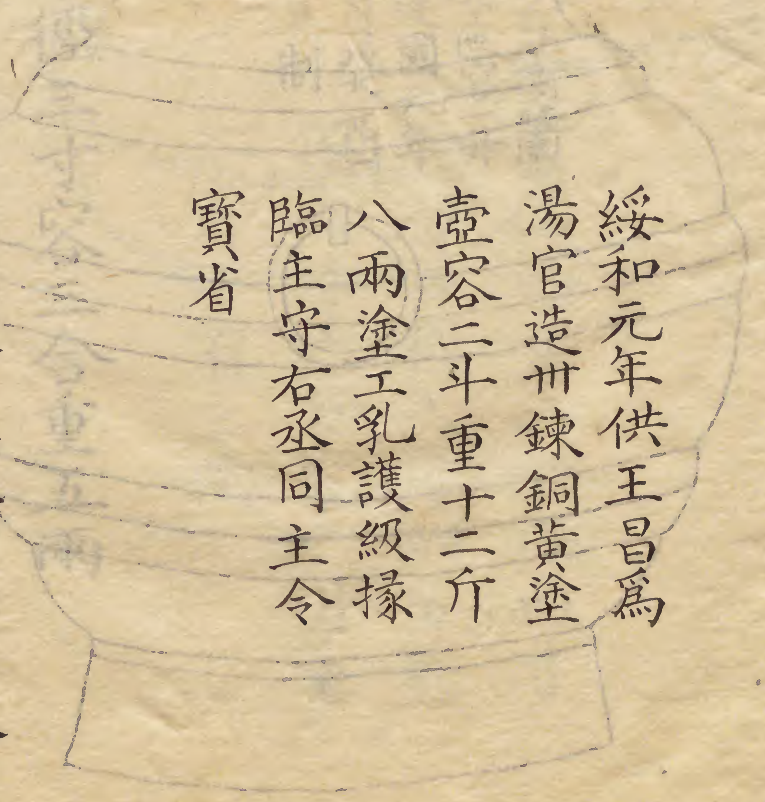 綏和元年供王昌爲
湯官造卅鍊銅黄塗
壺容二斗重十二斤
八兩塗工乳護級掾
臨主守右丞同主令
寳省